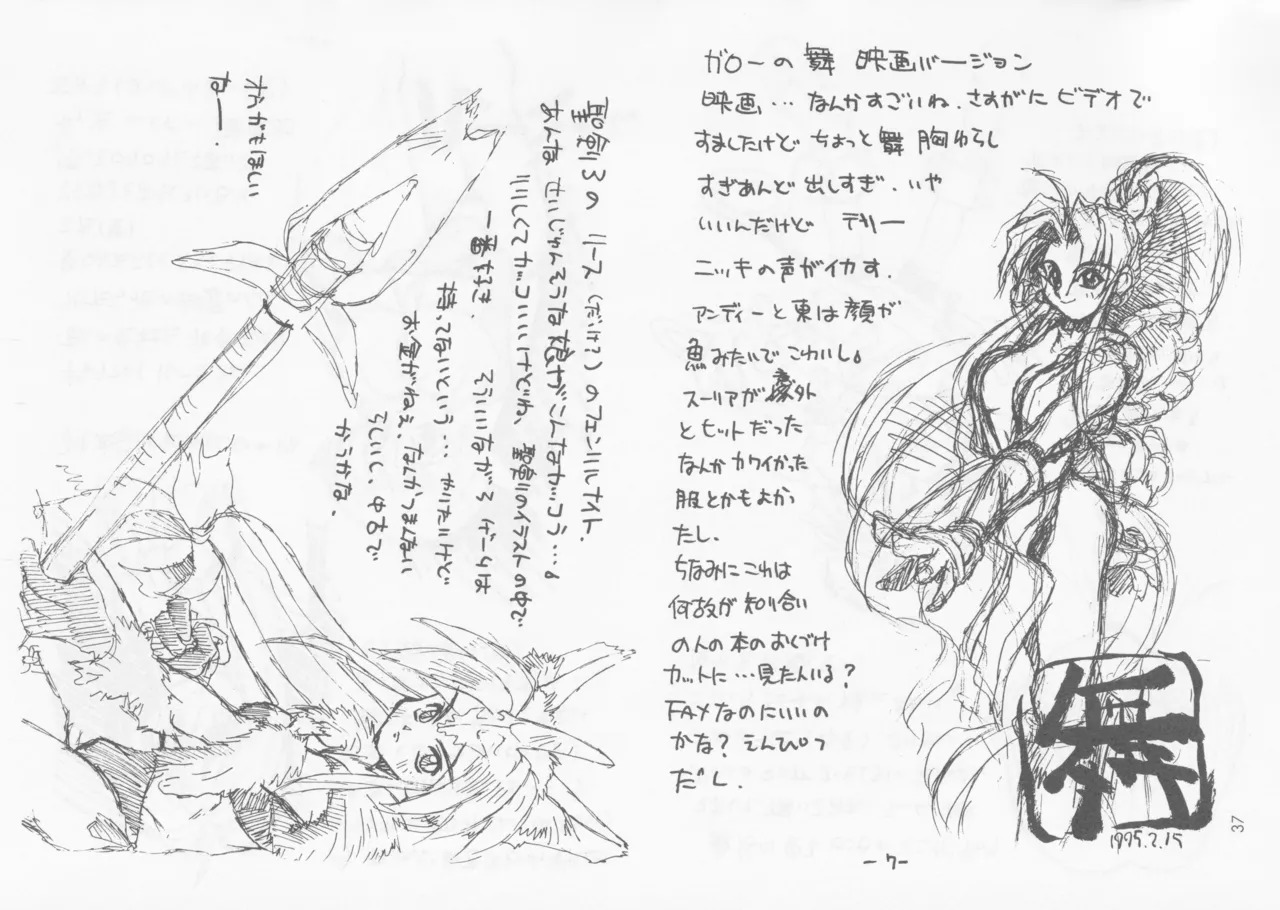 ガローの舞 映画バージョン
映画…なんかすごいね、さすがに ビデオで
すましたけど ちょっと 舞 胸ゆらし
すぎあんど 出しすぎ、いや
いいんだけど テリー
ニッキの声がイカす、
アンディーと東は顔が
魚みたいでこわいし。
スーリアが 外
とヒットだった
なんか カワイかった
服とかもよか、
たし、
ちなみにこれは
何故か 知り合い
の人の本のおしづけ
カットに…見た人いる?
FAXなのにいいの
かな? えんぴつ
だし、
1995.2.15
-7-
37
聖剣3の リース(だけ?)のフェンリルナイト、
あんな せいじゅんそうな娘がこんなカッコう…。
りりしくてカッコいいけどね、聖剣のイラストの中で
一番好き、 そういいながら ゲームは
持ってないという… かりたいけど
お金がねぇ、なんかつまんない
らしいし、中古で
かうかな、
オカがもほしい
ねー、